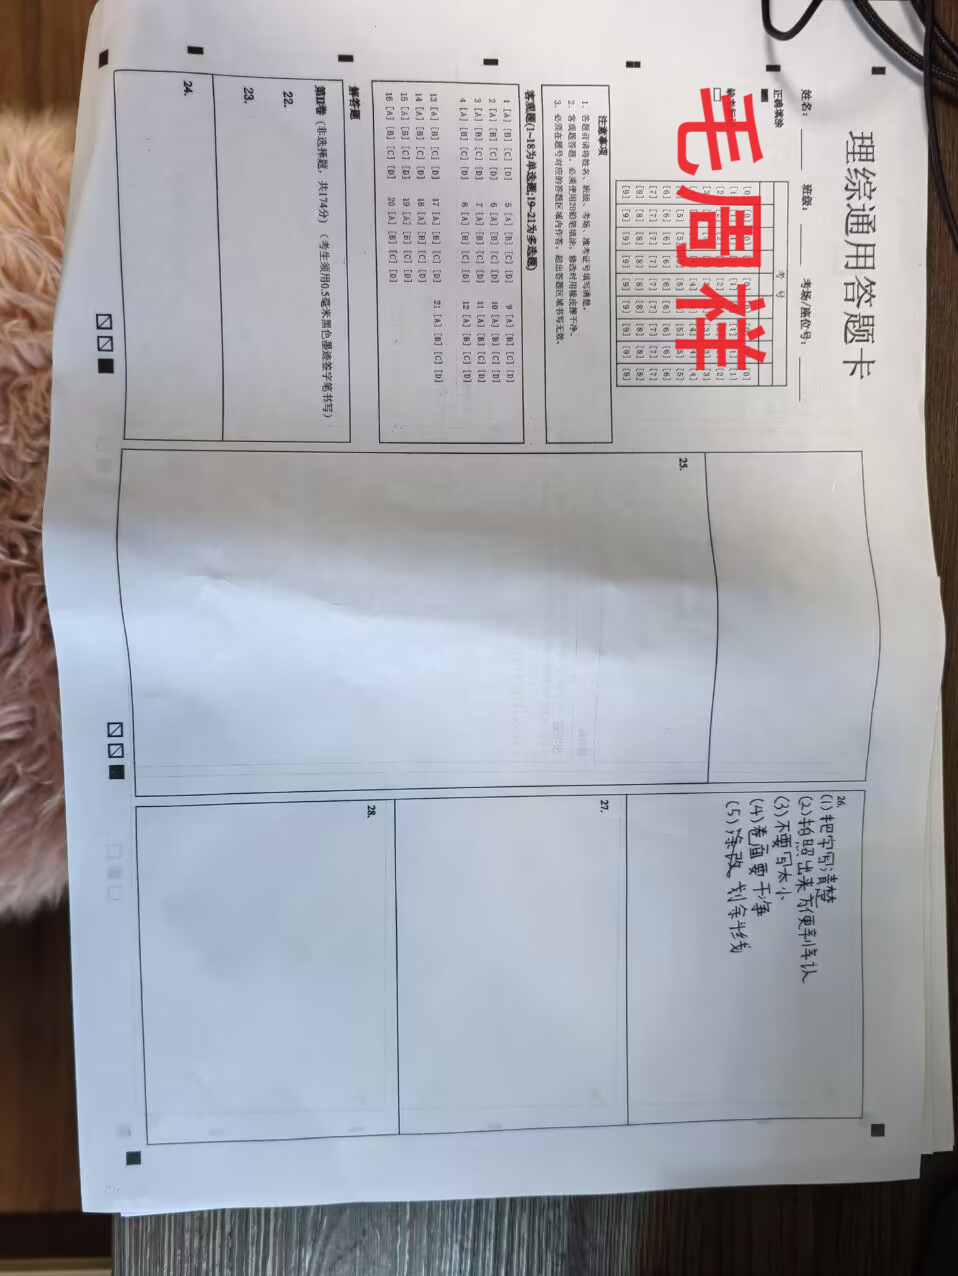 理综通用答题卡
姓名: 班级: 考场/座位号:
正确填涂
考 号
[0] [0] [0] [0] [0] [0] [0] [0]
[1] [1] [1] [1] [1] [1] [1] [1]
[2] [2] [2] [2] [2] [2] [2] [2]
[3] [3] [3] [3] [3] [3] [3] [3]
[4] [4] [4] [4] [4] [4] [4] [4]
[5] [5] [5] [5] [5] [5] [5] [5]
[6] [6] [6] [6] [6] [6] [6] [6]
[7] [7] [7] [7] [7] [7] [7] [7]
[8] [8] [8] [8] [8] [8] [8] [8]
[9] [9] [9] [9] [9] [9] [9] [9]
毛周祥
注意事项
1. 答题前请将姓名、班级、考场、准考证号填写清楚。
2. 客观题答题,必须使用2B铅笔填涂,修改时用橡皮擦干净。
3. 必须在题号对应的答题区域内作答,超出答题区域书写无效。
客观题(1~18为单选题;19~21为多选题)
1 [A] [B] [C] [D] 5 [A] [B] [C] [D] 9 [A] [B] [C] [D]
2 [A] [B] [C] [D] 6 [A] [B] [C] [D] 10 [A] [B] [C] [D]
3 [A] [B] [C] [D] 7 [A] [B] [C] [D] 11 [A] [B] [C] [D]
4 [A] [B] [C] [D] 8 [A] [B] [C] [D] 12 [A] [B] [C] [D]
13 [A] [B] [C] [D] 17 [A] [B] [C] [D] 21 [A] [B] [C] [D]
14 [A] [B] [C] [D] 18 [A] [B] [C] [D]
15 [A] [B] [C] [D] 19 [A] [B] [C] [D]
16 [A] [B] [C] [D] 20 [A] [B] [C] [D]
解答题
第II卷(非选择题,共174分)(考生须用0.5毫米黑色墨迹签字笔书写)
22.
23.
24.
25.
26.
(1)把字写清楚
(2)拍照出来方便辨认
(3)不要写太小
(4)卷面要干净
(5)涂改。划斜线
27.
28.